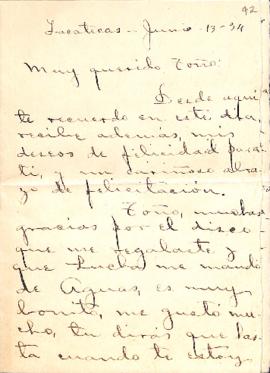 42
Zacatecas - Junio - 13 - 34
Muy querido Toño:
Desde aquí
te recuerdo en este día,
recibe además, mis
deseos de felicidad para
ti, y un cariñoso abra
zo de felicitación.
Toño, muchas
gracias por el disco
que me regalaste y
que Lucha me mandó
de Aguas, es muy
bonito, me gustó mu
cho, tu dirás que has
ta cuando te estoy